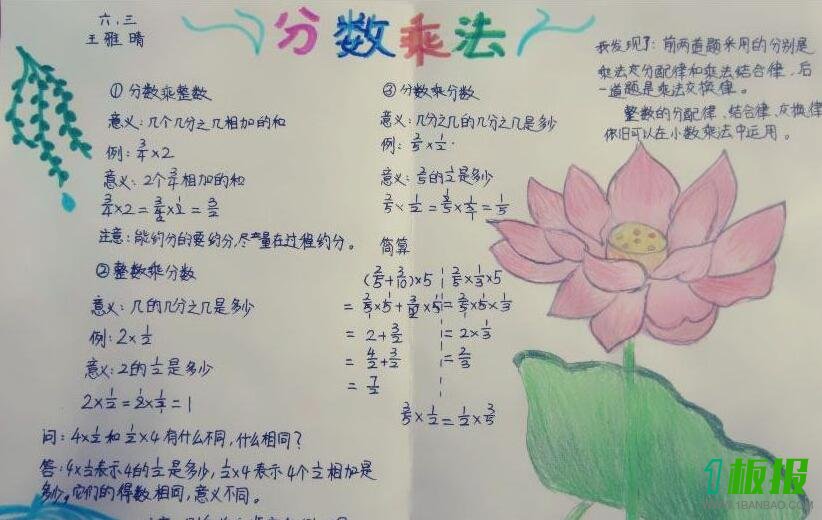 六.三
王雅晴
分数乘法
① 分数乘整数
意义:几个几分之几相加的和
例:3/4×2
意义:2个3/4相加的和
3/4×2=3/4×2/1=3/2
注意:能约分的要约分,尽量在过程约分。
② 整数乘分数
意义:几的几分之几是多少
例:2×1/2
意义:2的1/2是多少
2×1/2=2×1/2=1
问:4×1/2和1/2×4有什么不同,什么相同?
答:4×1/2表示4的1/2是多少,1/2×4表示4个1/2相加是
多少。它们的得数相同,意义不同。
③ 分数乘分数
意义:几分之几的几分之几是多少
例:2/5×1/2
意义:2/5的1/2是多少
2/5×1/2=2/5×1/2=1/5
简算
(2/5+3/10)×5
=2/5×5+3/10×5
=2+3/2
=4/2+3/2
=7/2
2/5×1/3×5
=2/5×5×1/3
=2×1/3
=2/3
3/5×1/2=1/2×3/5
我发现了:前两道题采用的分别是
乘法分配律和乘法结合律,后
一道题是乘法交换律。
整数的分配律、结合律、交换律
依旧可以在小数乘法中运用。
1板报
WWW.1BANBAO.COM